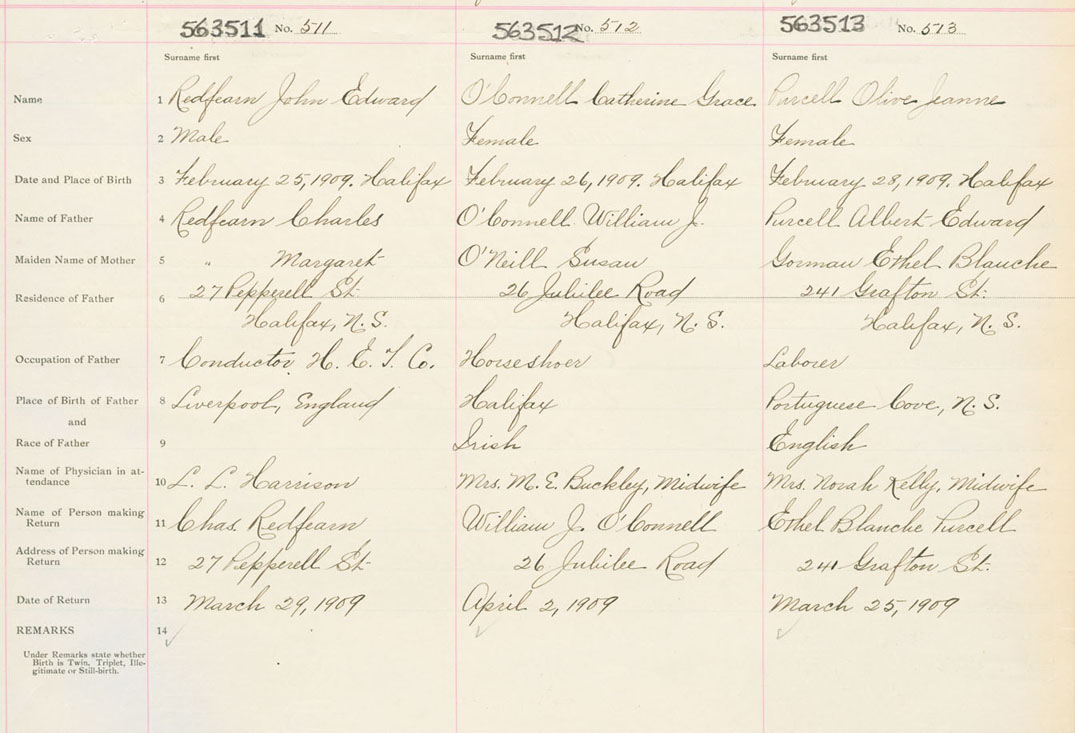 563511 No. 511 563512 No. 512 563513 No. 513
Surname first Surname first Surname first
Name 1 Redfearn John Edward O'Connell Catherine Grace Purcell Olive Jeanne
Sex 2 Male Female Female
Date and Place of Birth 3 February 25, 1909. Halifax February 26, 1909. Halifax February 28, 1909. Halifax
Name of Father 4 Redfearn Charles O'Connell William J. Purcell Albert Edward
Maiden Name of Mother 5 " Margaret O'Neill Susan Gorman Ethel Blanche
Residence of Father 6 27 Pepperell St. 26 Jubilee Road 241 Grafton St.
Halifax, N.S. Halifax, N.S. Halifax, N.S.
Occupation of Father 7 Conductor H. E. T. Co. Horseshoer Laborer
Place of Birth of Father 8 Liverpool, England Halifax Portuguese Cove, N.S.
and
Race of Father 9 Irish English
Name of Physician in at-
tendance 10 L. L. Harrison Mrs. M. E. Buckley, Midwife Mrs. Norah Kelly, Midwife
Name of Person making
Return 11 Chas. Redfearn William J. O'Connell Ethel Blanche Purcell
Address of Person making
Return 12 27 Pepperell St. 26 Jubilee Road 241 Grafton St.
Date of Return 13 March 29, 1909 April 2, 1909 March 25, 1909
REMARKS 14
Under Remarks state whether
Birth is Twin, Triplet, Ille-
gitimate or Still-birth.